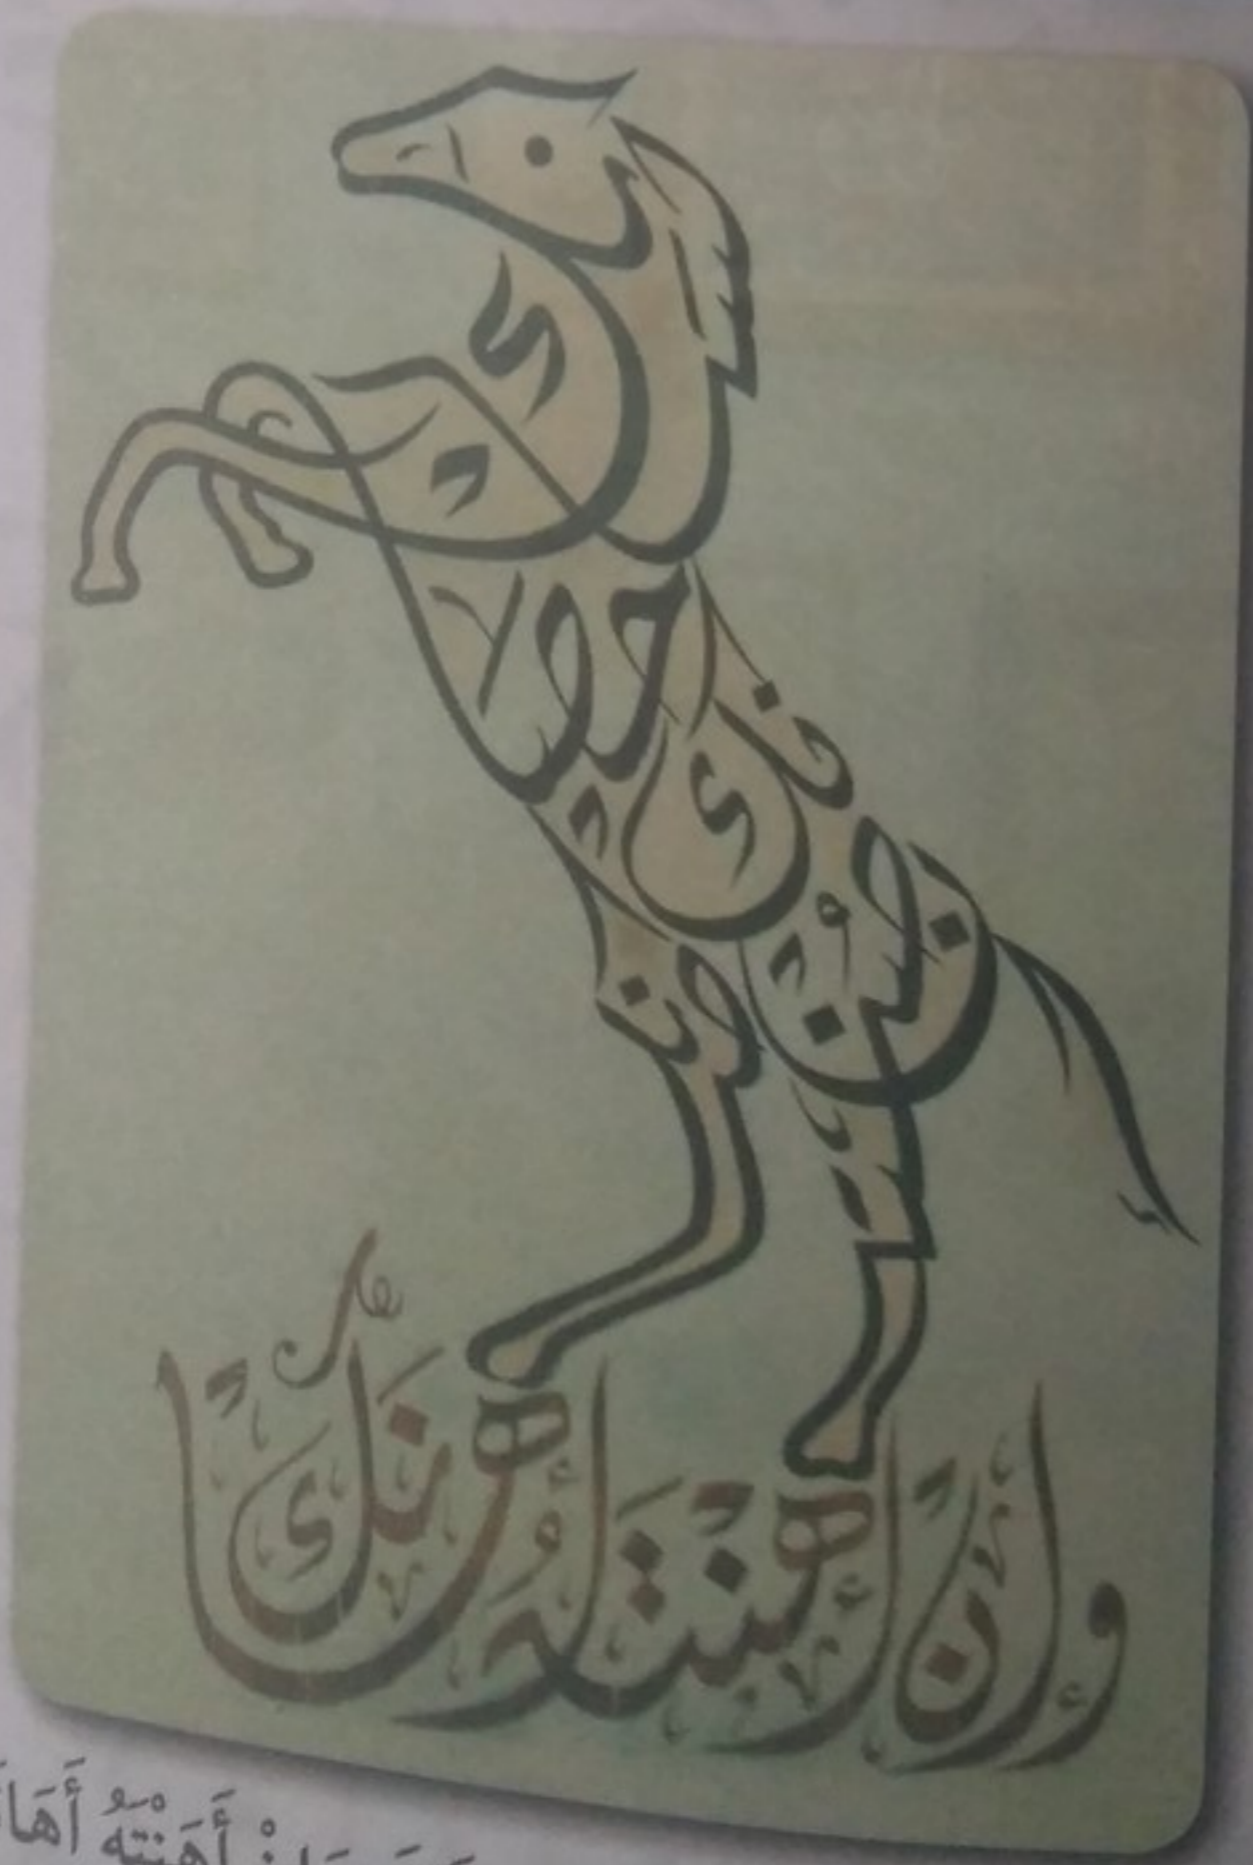 لسانك
حصانك
إن صنته
صانك
وإن أهنته أهانك
وَإِنْ أَهَنْتَهُ أَهَا